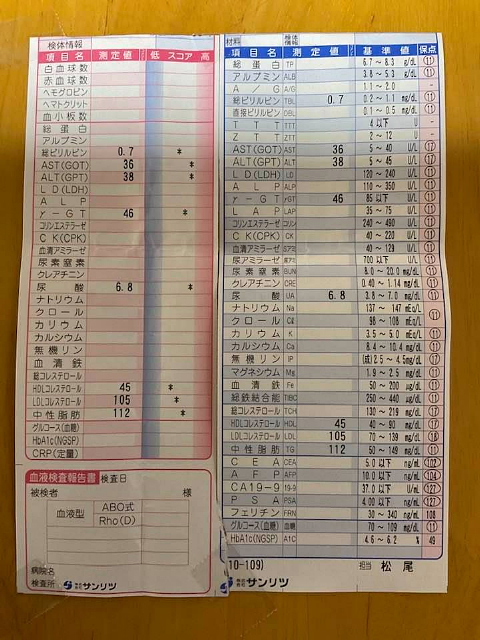 検体情報
項目名 測定値 低 スコア 高
白血球数
赤血球数
ヘモグロビン
ヘマトクリット
血小板数
総蛋白
アルブミン
総ビリルビン 0.7 *
AST(GOT) 36 *
ALT(GPT) 38 *
LD(LDH)
ALP
γ-GT 46 *
コリンエステラーゼ
CK(CPK)
血清アミラーゼ
尿素窒素
クレアチニン
尿酸 6.8 *
ナトリウム
クロール
カリウム
カルシウム
無機リン
血清鉄
総コレステロール
HDLコレステロール 45 *
LDLコレステロール 105 *
中性脂肪 112 *
グルコース(血糖)
HbA1c(NGSP)
CRP(定量)
血液検査報告書 検査日
被検者 様
血液型 ABO式
Rho(D)
病院名
検査所 株式会社 サンリツ
材料 検体情報
項目名 測定値 基準値 保点
総蛋白 TP 6.7 ~ 8.3 g/dL ⑪
アルブミン ALB 3.8 ~ 5.3 g/dL ⑪
A/G A/G 1.1 ~ 2.0 -
総ビリルビン TBL 0.7 0.2 ~ 1.1 mg/dL ⑪
直接ビリルビン DBL 0.1 ~ 0.5 mg/dL ⑪
TTT TTT 4 以下 U -
ZTT ZTT 2 ~ 12 U -
AST(GOT) AST 36 5 ~ 40 U/L ⑰
ALT(GPT) ALT 38 5 ~ 45 U/L ⑰
LD(LDH) LD 120 ~ 240 U/L ⑪
ALP ALP 110 ~ 350 U/L ⑪
γ-GT γGT 46 85 以下 U/L ⑪
LAP LAP 35 ~ 75 U/L ⑪
コリンエステラーゼ 240 ~ 490 U/L ⑪
CK(CPK) CK 40 ~ 220 U/L ⑪
血清アミラーゼ 40 ~ 129 U/L ⑪
尿アミラーゼ 700 以下 U/L ⑪
尿素窒素 BUN 8.0 ~ 20.0 mg/dL ⑪
クレアチニン CRE 0.40 ~ 1.14 mg/dL ⑪
尿酸 UA 6.8 3.8 ~ 7.0 mg/dL ⑪
ナトリウム Na 137 ~ 147 mEq/L ⑪
クロール Cl 98 ~ 108 mEq/L
カリウム K 3.5 ~ 5.0 mEq/L ⑪
カルシウム Ca 8.4 ~ 10.4 mg/dL ⑪
無機リン IP (成)2.5 ~ 4.5 mg/dL ⑰
マグネシウム Mg 1.9 ~ 2.5 mg/dL ⑪
血清鉄 Fe 50 ~ 200 μg/dL ⑪
総鉄結合能 TIBC 250 ~ 440 μg/dL ⑪
総コレステロール TCH 130 ~ 219 mg/dL ⑰
HDLコレステロール HDL 45 40 ~ 90 mg/dL ⑰
LDLコレステロール LDL 105 70 ~ 139 mg/dL ⑱
中性脂肪 TG 112 50 ~ 149 mg/dL ⑪
CEA CEA 5.0 以下 ng/mL 102
AFP AFP 10.0 以下 ng/mL 104
CA19-9 19-9 37.0 以下 U/mL 127
PSA PSA 4.00 以下 ng/mL 127
フェリチン FRN 30 ~ 340 ng/mL 108
グルコース(血糖) 血糖 70 ~ 109 mg/dL ⑪
HbA1c(NGSP) A1C 4.6 ~ 6.2 % 49
10-109) 担当 松尾
株式会社 サンリツ